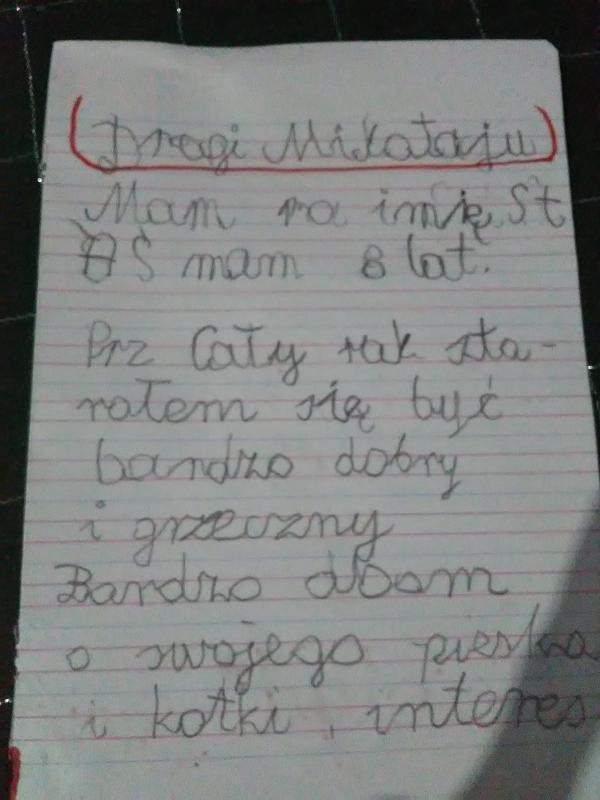 Dragi Mikołaju
Mam na imię St
aś mam 8 lat.
Prz Cały rok sta-
rałem się być
bardzo dobry
i grzeczny
Bardzo dbam
o swojego pieska
i kotki, interes